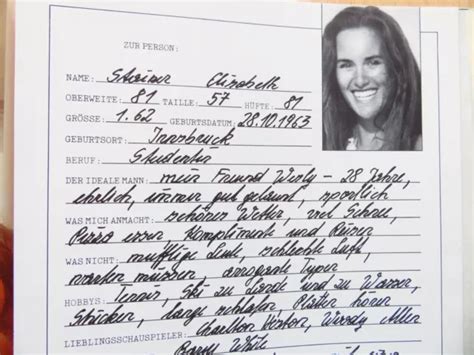 ZUR PERSON:
NAME: Steiner Elisabeth
OBERWEITE: 81 TAILLE: 57 HÜFTE: 81
GRÖSSE: 1.62 GEBURTSDATUM: 28.10.1963
GEBURTSORT: Innsbruck
BERUF: Studentin
DER IDEALE MANN: mein Freund - 28 Jahre,
ehrlich, immer gut gelaunt, sportlich
WAS MICH ANMACHT: schönes Wetter, viel Schnee,
Pizza essen Kompliment und
WAS NICHT: muffige Leute, schlechte Luft,
warten müssen, arrogante Typen
HOBBYS: Tennis, Ski zu Lande und zu Wasser,
lange schlafen Platten hören
LIEBLINGSSCHAUSPIELER: Charlton Heston, Woody Allen